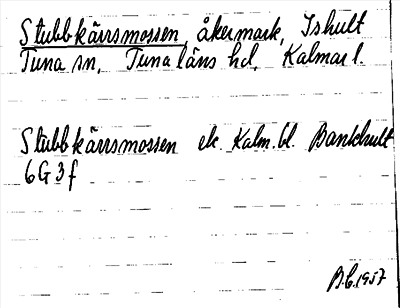 Stubbkärrsmossen, åkermark, Ishult
Tuna sn, Tunaläns hd, Kalmar l.
Stubbkärrsmossen ek. Kalm. bl. Bankhult
6G3f
B.C. 1957